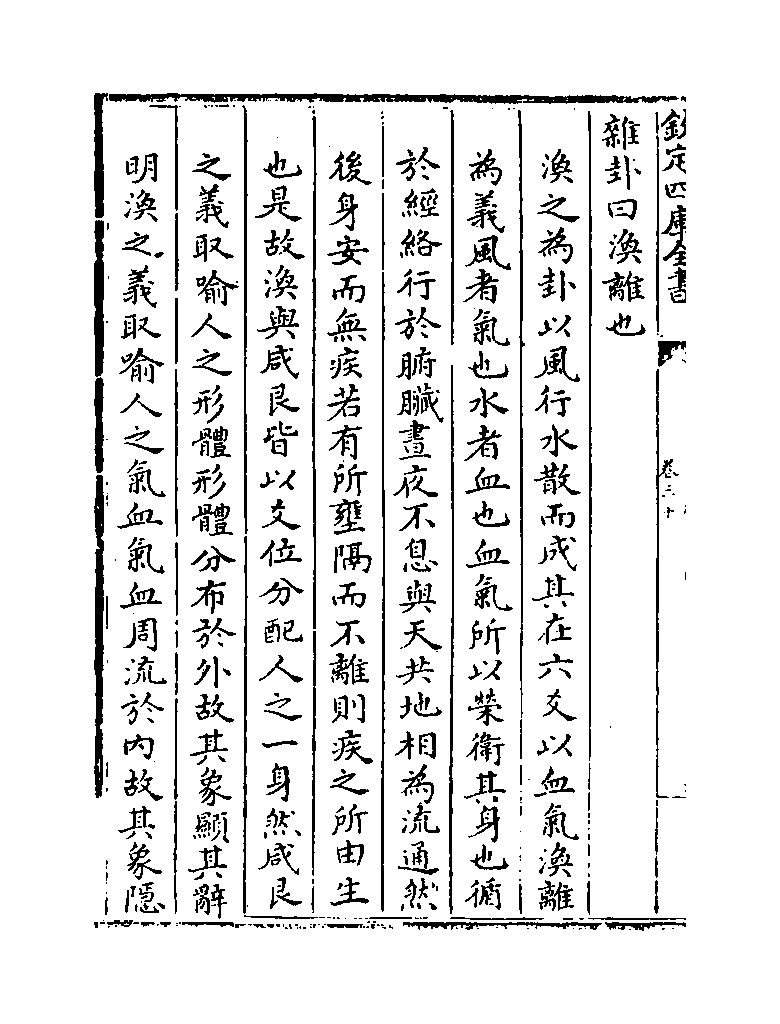 欽定四庫全書
卷三十
雜卦曰渙離也
渙之為卦以風行水散而成其在六爻以血氣渙離
為義風者氣也水者血也血氣所以榮衛其身也循
於經絡行於腑臟晝夜不息與天共地相為流通然
後身安而無疾若有所壅隔而不離則疾之所由生
也是故渙與咸艮皆以爻位分配人之一身然咸艮
之義取喻人之形體形體分布於外故其象顯其辭
明渙之義取喻人之氣血氣血周流於内故其象隱